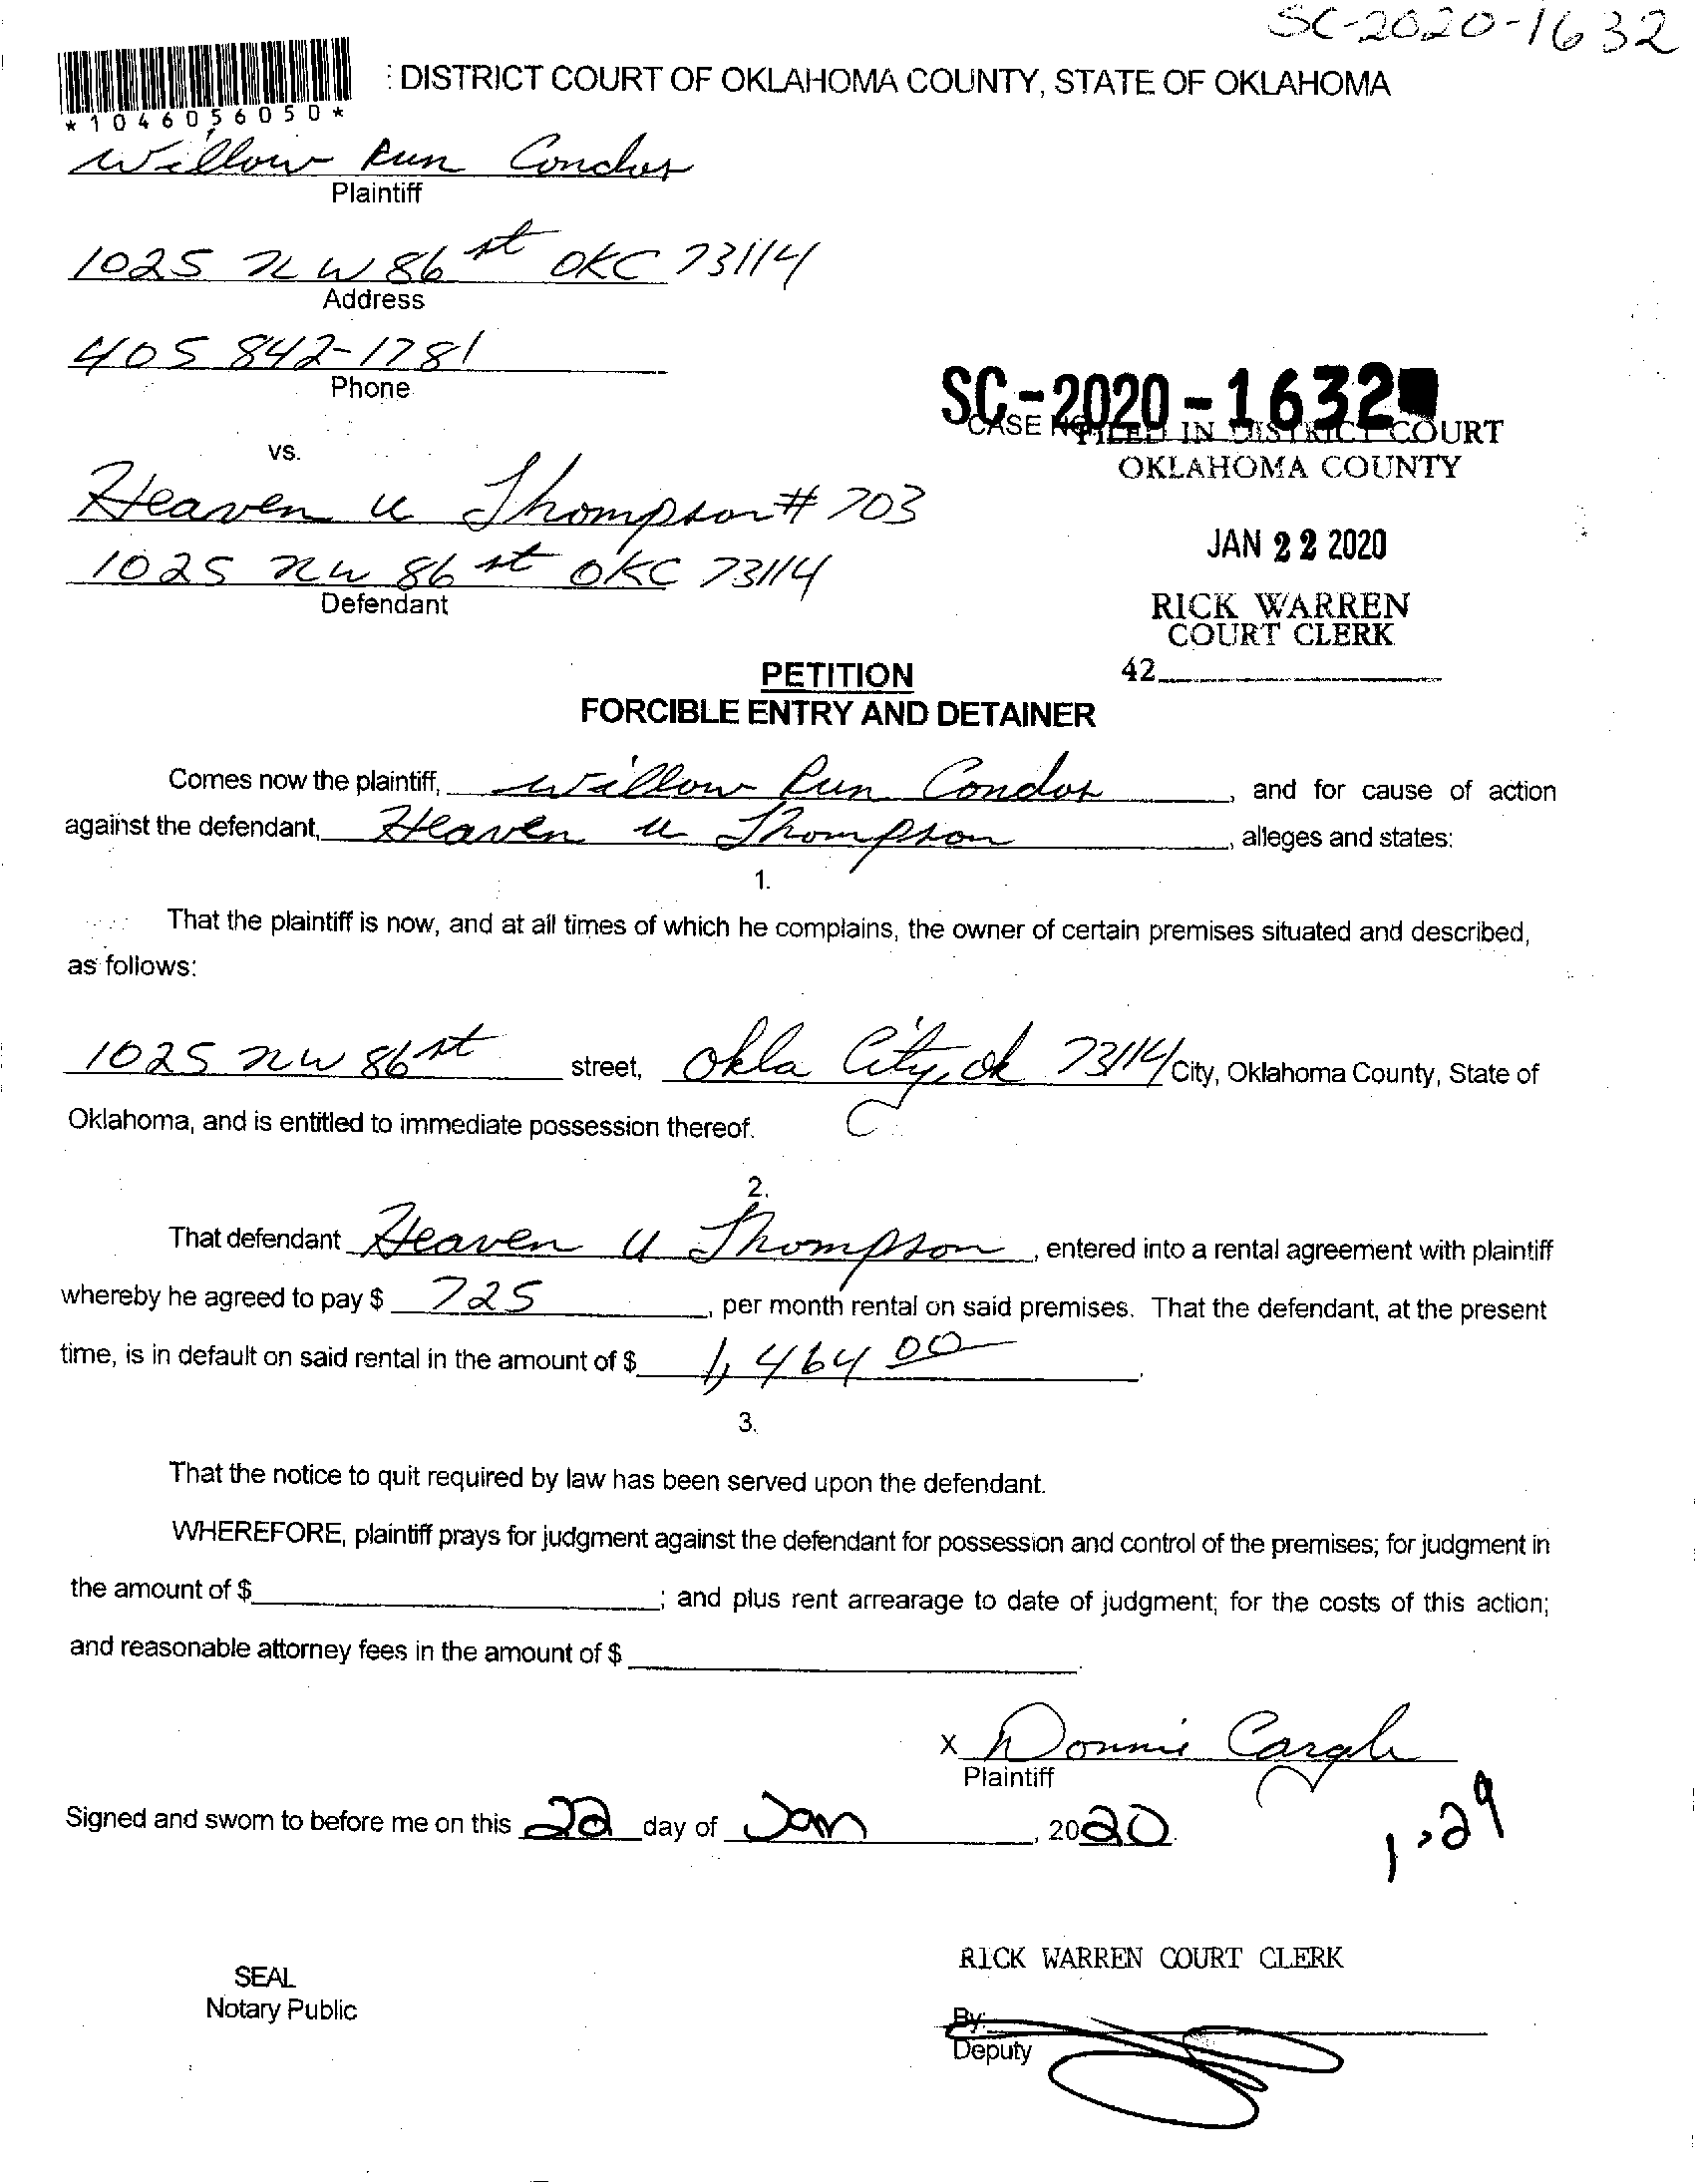 SC-2020-1632
: DISTRICT COURT OF OKLAHOMA COUNTY, STATE OF OKLAHOMA
*1046056050*
Willow Run Condos
Plaintiff
1025 NW 86 st OKC 73114
Address
405 842-1781
Phone
SC-2020-1632
CASE NO.
FILED IN DISTRICT COURT
OKLAHOMA COUNTY
vs.
Heaven U Thompson # 703
JAN 22 2020
1025 NW 86 st OKC 73114
Defendant
RICK WARREN
COURT CLERK
42
PETITION
FORCIBLE ENTRY AND DETAINER
Comes now the plaintiff, Willow Run Condos, and for cause of action
against the defendant, Heaven U Thompson, alleges and states:
1.
That the plaintiff is now, and at all times of which he complains, the owner of certain premises situated and described,
as follows:
1025 NW 86 st street, Okla City, Ok 73114 City, Oklahoma County, State of
Oklahoma, and is entitled to immediate possession thereof.
2.
That defendant Heaven U Thompson, entered into a rental agreement with plaintiff
whereby he agreed to pay $ 725, per month rental on said premises. That the defendant, at the present
time, is in default on said rental in the amount of $ 1,464 00.
3.
That the notice to quit required by law has been served upon the defendant.
WHEREFORE, plaintiff prays for judgment against the defendant for possession and control of the premises; for judgment in
the amount of $ ; and plus rent arrearage to date of judgment; for the costs of this action;
and reasonable attorney fees in the amount of $ .
X Donnie Cargle
Plaintiff
Signed and sworn to before me on this 22 day of Jan, 2020.
1.29
RICK WARREN COURT CLERK
SEAL
Notary Public
By:
Deputy